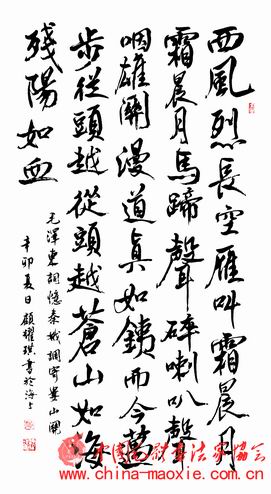 西風烈長空雁叫霜晨月
霜晨月馬蹄聲碎喇叭聲
咽雄關漫道真如銕而今邁
步從頭越從頭越蒼山如海
殘陽如血
毛澤東詞憶秦娥調寄婁山關
辛卯夏日顧耀琪書於海上
www.china-maoxie.com.cn